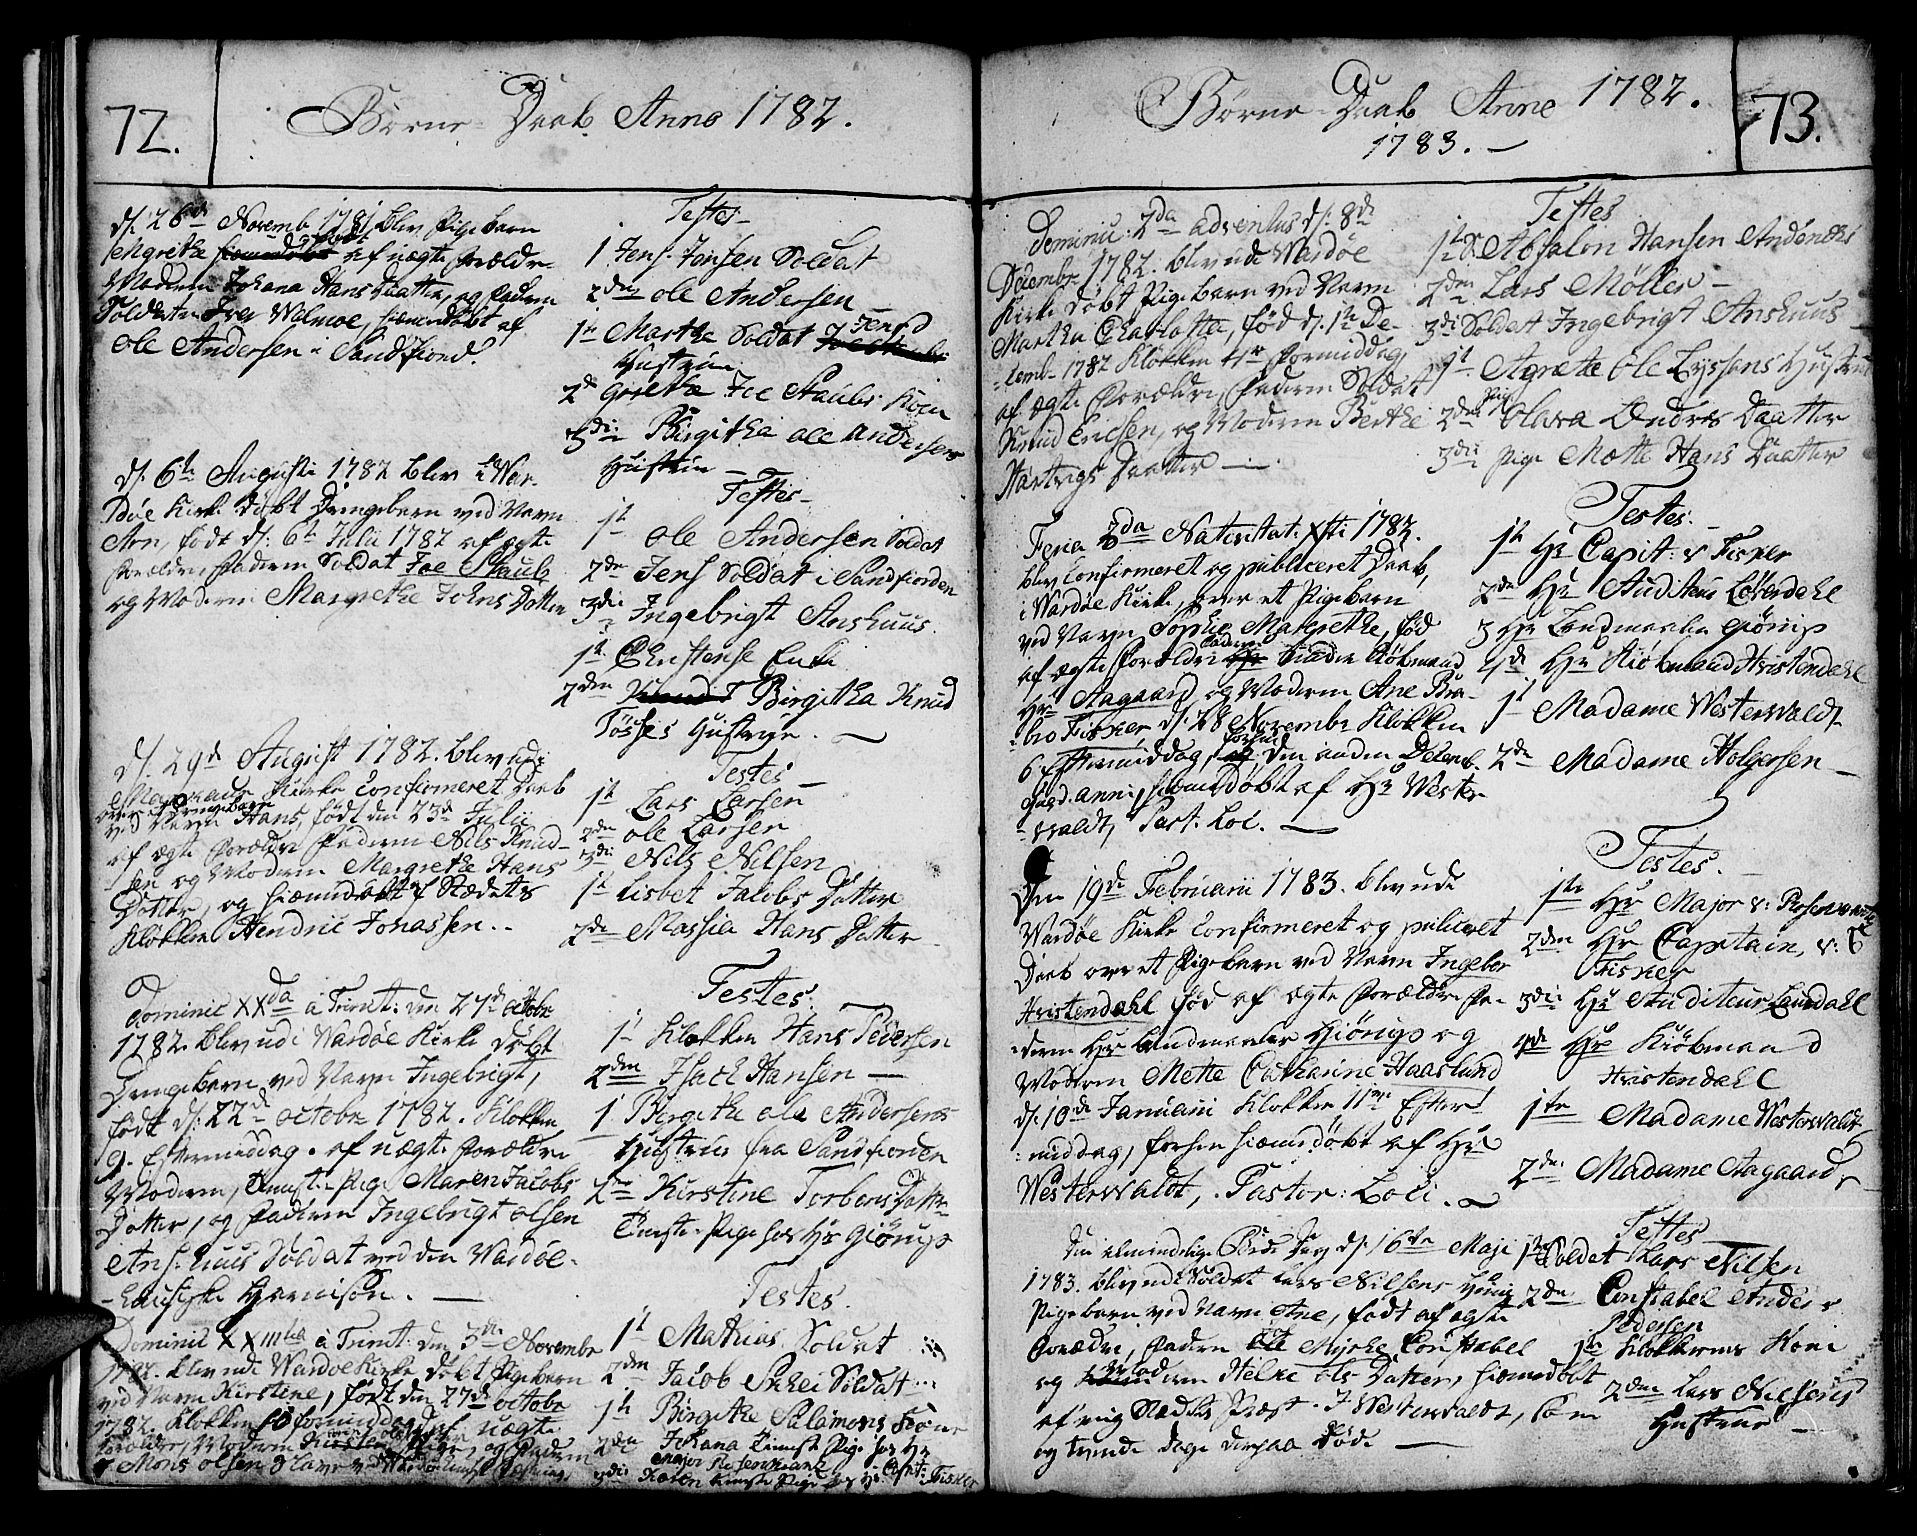 72.
Børne-Daab Anno 1782.
d: 26de Novemb 1781 blev Pigebarn
Mgrethe døbt af uægte Forældre
Moderen Johana Hans Daatter, og Faderen
Soldaten Wilmoe, hiemmedøbt af
Ole Andersen i Sandfiord.
Testes
1 Jens Jonsen Soldat
2den Ole Andersen
1te Martha Soldat Jens's
Hustrue
2de Grethe Joe Staubs Kone
3die Birgitha Ole Andersens
Hustrue
d: 6te Augusti 1782 blev i War-
døe Kirke døbt Drengebarn ved Navn
Aron, født d: 6te Julii 1782 af ægte
Forældre, Faderen Soldat Joe Staub,
og Moderen Margrethe Johns Datter
Testes
1te Ole Andersen Soldat
2den Jens Soldat i Sandfiorden
3die Ingebrigt Anshuus.
1te Christense Enke
2den Birgitha Knud
Tøsses Hustrue.
d: 29de August 1782. blev udi
Kirke Confirmeret Daab
over Drengebarn
ved Navn Hans, født den 23de Julii
af ægte Forældre Faderen Nils Knud-
sen og Moderen Margrethe Hans
Dotter, og hiemmedøbt af Stædets
Klokker Hendric Johassen..
Testes
1te Lars Larsen
2den Ole Larsen
3die Nils Nilsen
1te Lisbet Jacobs Datter
2de Massia Hans Datter
Dominic XXda à Trinit: den 27de Octobr
1782. blev udi Wardøe Kirke døbt
Drengebarn ved Navn Ingebrigt,
født d: 22de Octobr 1782. Klokken
9. Eftermiddag. af uægte Forældre
Moderen, Tieneste Pige Maren Jacobs
Datter, og Faderen Ingebrigt Olsen
Ans-huus Soldat ved den Wardøe-
huusiske Garnison.
Testes.
1te Klokker Hans Pedersen
2den Isach Hansen
1. Birgithe Ole Andersens
Hustrue fra Sandfiorden
2den Kirstine Torbens Datter
Tieneste-Pige hos Hr Giörup
Dominic XXIIItia à Trinit: den 3die Novembr
1782. blev udi Wardøe Kirke døbt Pigebarn
ved Navn Kirstine, født den 27de Octobr
1782. Klokken 10 formiddag af uægte
Forældre, Moderen Pige, og Faderen
Mons Olsen Slave ved Wardøehuus Fæstning.
Testes.
1te Mathias Soldat
2den Jacob Soldat
1te Birgithe Salamons Kone
2den Johana Tieneste Pige hos Hr
Major Rosenkrantz
3die Karen tieneste Pige hos Hr Capit: Fisker
Børne-Daab Anno 1782.
1783.
73.
Dominic: 2da adventus d: 8de
Decembr 1782. blev udi Wardøe
Kirke døbt Pigebarn ved Navn
Martha Charlotta, fød d: 1te De-
cemb 1782 Klokken 4re Formiddag,
af ægte Forældre, Faderen Soldat
Knud Ericsen, og Moderen Berthe
Hartvigs Daatter
Testes
1te Absalon Hansen Andenæs
2den Lars Møller
3die Soldat Ingebrigt Anshuus
1te Agrethe Ole Lyssens Hustrue
2den Pige Olava Endres Daatter
3die Pige Mette Hans Daatter
Feria 2da Nativitat: Xsti 1782.
blev Confirmeret og publiceret Daab,
i Wardøe Kirke, over et Pigebarn
ved Navn Sophie Margrethe, fød
af ægte Forældre Faderen Kiøbmand
Hr Aagaard og Moderen Ane Bra-
bro Fisker d: 28 Novembr Klokken
6 Eftermiddag, forhen den anden Decemb.
hiemmedøbt af Hr Wester
waldt, Past. Loc.
Testes.
1te Hr Capit: v Fisker
2den Hr Auditeur Lövendahl
3 Hr Landmaaler Giörup
4de Hr Kiöbmand Kristendahl
1te Madame Westerwaldt
2de Madame Holgersen
Den 19de Februarii 1783. blev udi
Wardøe Kirke Confirmeret og publiceret
Daab over et Pigebarn ved Navn Ingebor
Kristendahl fød af ægte Forældre Fa-
deren Hr Landmaaler Hiörup og
Moderen Mette Catharine Haaslund
d: 10de Januarii Klokken 11ve Efter
middag, forhen hiemmedøbt af Hr
Westerwaldt, Pastor: Loci.
Testes.
1te Hr Major v: Rosenkrantz
2den Hr Capitain, v:
Fisker
3die Hr Auditeur Laurdahl
4de Hr Kiöbmand
Kristendahl
1te Madame Westerwaldt
2de Madame Aagaard,
Den almindelige Bede Dag d: 16de Maji
1783. blev udi Soldat Lars Nilsens Huus
Pigebarn ved Navn Ane, født af ægte
Forældre, Faderen Ole Myrhe Constabel
og Moderen Helne Ols Datter, hiemmedøbt
af mig Stædets Præst. J. Westerwaldt, som
og trende dage derpaa døde
Testes
1te Soldat Lars Nilsen
2den Constabel Anders
Pedersen
1te Klokkerens Kone
2den Lars Nielsens
Hustrue